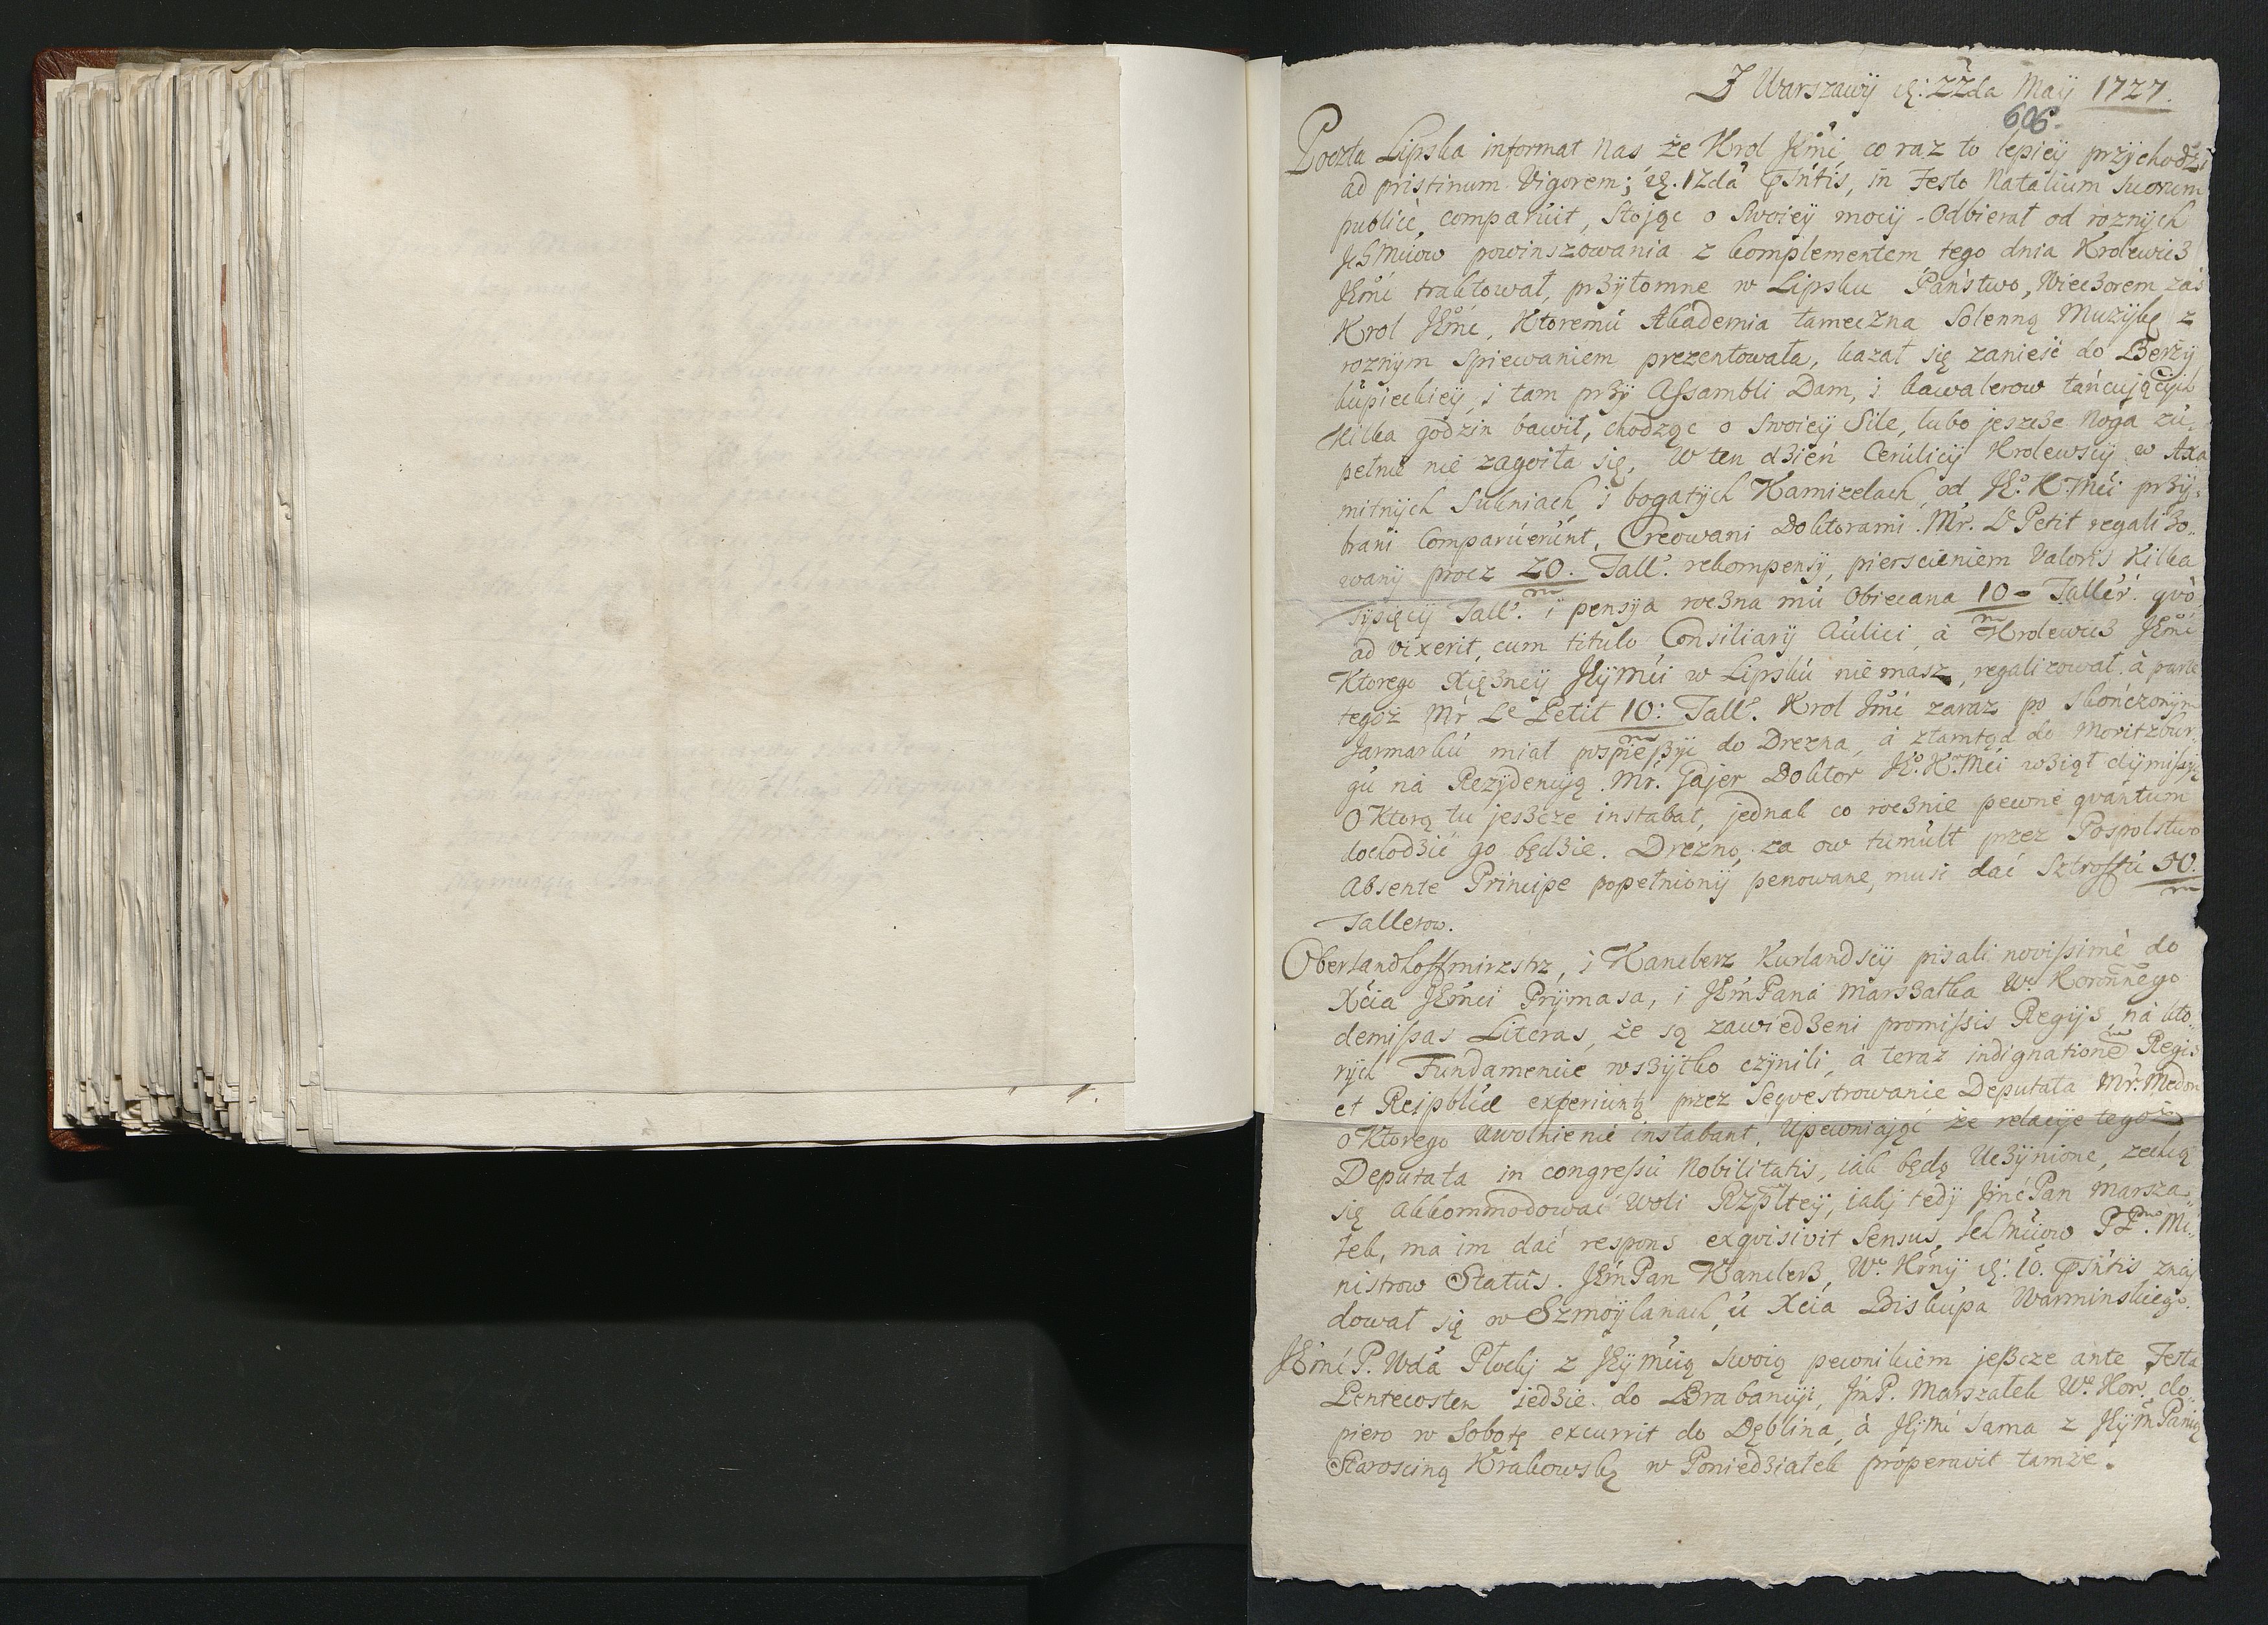 Z Warszawÿ d: 22da Maÿ 1727.
606
Poczta Lipska informat nas że Krol JEmć co raz to lepieÿ przÿchodzi
ad pristinum Vigorem; d. 12da pśntis, in Festo Natalium suorum
publicè comparuit, stojąc o swoieÿ mocÿ odbierał od roznÿch
JchMciow powinszowania z komplementem tego dnia Krolewic3
JEmć traktował, pr3ÿtomne w Lipsku Państwo, Wiec3orem zaś
Krol JEmć, Ktoremu Akademia tameczna Solenną Muzÿkę z
roznÿm spiewaniem prezentowała, kazał się zanieść do Berżÿ
kupieckieÿ, i tam pr3ÿ Assambli Dam, i kawalerow tańcującÿch
Kilka godzin bawił, chodząc o swoieÿ Sile, lubo jeszc3e Noga zu-
pełnie nie zagoiła się, W ten d3ień Cerulicÿ Krolewscÿ w Axa
mitnÿch Sukniach i bogatÿch Kamizelach od JE: K: Mći pr3ÿ-
brani Comparuerunt, Creowani Doktorami. Mr. Le Petit regali3o-
wanÿ procz 20. Tall. rekompensÿ, pierscieniem Valoris Kilka
tysięcÿ Tall. i pensÿa roc3na mu Obiecana 10 Taller. qvo
ad vixerit, cum titulo Consiliarÿ Aulici, à Krolewic3 JEmć
Ktorego Xię3neÿ JEÿmći w Lipsku nie masz, regalizował à parte
tegoż Mr Le Petit 10: Tall. Krol Jmć zaraz po skończonÿm
Jarmarku miał pospies3ÿć do Drezna, a ztamtąd do Moritzbur-
gu na Rezÿdencÿą. Mr. Gajer Doktor JE. K. Mći w3iął dÿmissÿą
o Ktorą tu jes3cze instabat, jednak co roc3nie pewne qvantum
dochod3ić go będ3ie. Drezno, za ow tumult przez Pospolstwo
Absente Principe popełnionÿ penowane, musi dać Sztroffu 50.
Tallerow.
Oberlandhoffmirzstrz, i Kanclerz Kurlandscÿ pisali novissimè do
Xcia JEmći Prÿmasa, i JEmPana Mars3ałka W. Koronnego
demissas Literas, że są zawied3eni promissis Regijs, na kto-
rÿch Fundamencie ws3ÿtko czÿnili, a teraz indignationē Regis
et Reipblicæ experiuntą przez Seqvestrowanie Deputata Mr. Medon
o Ktorego uwolnienie instabant, Upewniając że relacÿe tegoż
Deputata in congressu Nobilitatis, iak będą Uc3ÿnione, zechcą
się akkommodować woli Rzpltey, iakÿ tedÿ JmćPan Marsza-
łek, ma im dać respons exqvisivit Sensus JchMciow PP. Mi-
nistrow Status. JEmPan Kancler3, W. Kornÿ, d: 10. pśntis znaj
dował się w Szmoÿlanach, u Xcia Biskupa Warminskiego.
JEmć P. Wda Płockÿ z JEÿmcią swoią pewnikiem jes3cze ante Festa
Pentecosten ied3ie do Brabancÿi, JmP. Marszałek W. Kor. do-
piero w Sobotę excurrit do Dęblina, à JEÿmć sama z JEÿmPanią
Staroscing Krakowską w Ponied3iałek properavit tamże.